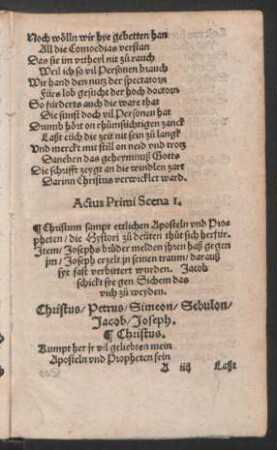 Noch wölln wir hye gebetten han
All die Comoedias verstan
Das sie im vrtheyl nit zů rauch
Weil ich so vil Personen brauch
Wir hand den nutz der spectatorn
Fürs lob gesůcht der hoch doctorn
So fürderts auch die ware that
Die sunst doch vil Personen hat
Drumb hört on rhůmsüchtigen zanck
Laßt eüch die zeit nit sein zů langk
Vnd merckt mit still on neid vnd trotz
Daneben das geheymnuß Gotts
Die schrifft zeygt an die windlen zart
Darinn Christus verwicklet ward.
Actus Primi Scena 1.
¶ Christum sampt ettlichen Aposteln vnd Pro-
pheten / die Hystori zů deüten thůt sich herfür.
Item / Josephs brüder melden jhren haß gegen
jm / Joseph erzelt jn seinen traum / darauß
sye fast verbittert wurden. Jacob
schickt sye gen Sichem das
vich zů weyden.
Christus / Petrus / Simeon / Sebulon /
Jacob / Joseph.
¶ Christus.
Kumpt her jr vil geliebten mein
Aposteln vnd Propheten fein
A iiij Laßt